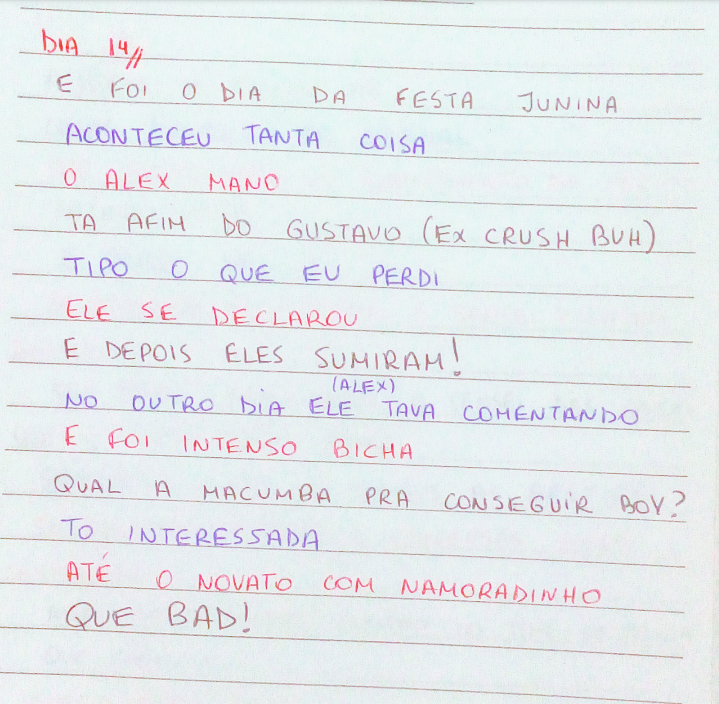 DIA 14//
E FOI O DIA DA FESTA JUNINA
ACONTECEU TANTA COISA
O ALEX MANO
TA AFIM DO GUSTAVO (EX CRUSH BUH)
TIPO O QUE EU PERDI
ELE SE DECLAROU
E DEPOIS ELES SUMIRAM!
(ALEX)
NO OUTRO DIA ELE TAVA COMENTANDO
E FOI INTENSO BICHA
QUAL A MACUMBA PRA CONSEGUIR BOY?
TO INTERESSADA
ATÉ O NOVATO COM NAMORADINHO
QUE BAD!